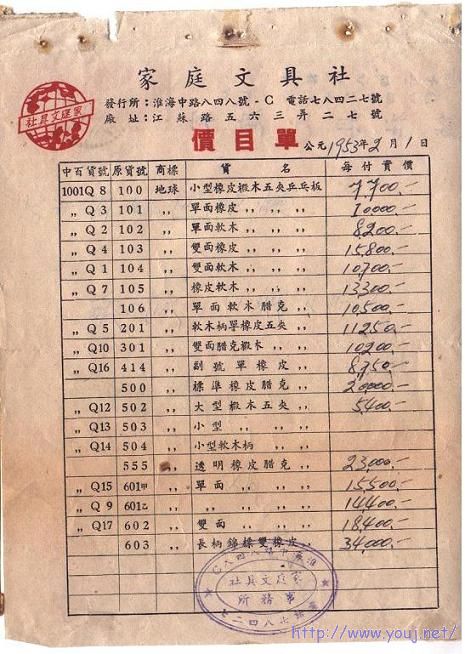 家庭文具社
家庭文具社
發行所：淮海中路八四八號-C 電話七八四二七號
廠址：江蘇路五六三弄二七號
價目單
公元1953年2月1日
中百貨號 原貨號 商標 貨名 每付賣價
1001Q 8 100 地球 小型橡皮椴木五夾乒乓板 7700.-
〃 Q 3 101 〃 單面橡皮 〃 〃 〃 10000.-
〃 Q 2 102 〃 單面軟木 〃 〃 〃 8200.-
〃 Q 4 103 〃 雙面橡皮 〃 〃 〃 15.800.-
〃 Q 1 104 〃 雙面軟木 〃 〃 〃 10,700.-
〃 Q 7 105 〃 橡皮軟木 〃 〃 〃 13300.-
106 〃 單面軟木腊克 〃 10,500.-
〃 Q 5 201 〃 軟木柄單橡皮五夾 〃 11250.-
〃 Q10 301 〃 雙面腊克椴木 〃 〃 10200.-
〃 Q16 414 〃 副號單橡皮 〃 〃 8,750.-
500 〃 標準橡皮腊克 〃 20,000.-
〃 Q12 502 〃 大型椴木五夾 〃 5,400.-
〃 Q13 503 〃 小型 〃 〃 〃
〃 Q14 504 〃 小型軟木柄 〃
555 〃 透明橡皮腊克 〃 23,000.-
〃 Q15 601甲 〃 單面 〃 〃 15500.-
〃 Q 9 601乙 〃 〃 〃 〃 14400.-
〃 Q17 602 〃 雙面 〃 〃 18,400.-
603 〃 長柄錦標雙橡皮 〃 34,000.-
淮海中路八四八C
家庭文具社
事務所
電話七八四二七
http://www.youj.net/